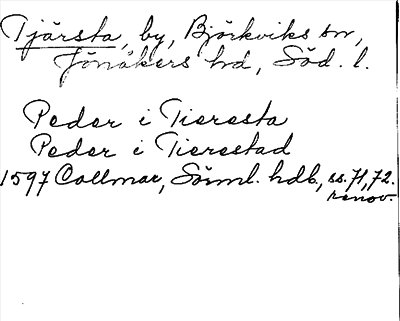 Tjärsta, by, Björkviks sn,
Jönåkers hd, Söd. l.
Peder i Tieresta
Peder i Tierestad
1597 Collmar, Sörml. hdl, ss. 71, 72.
renov.